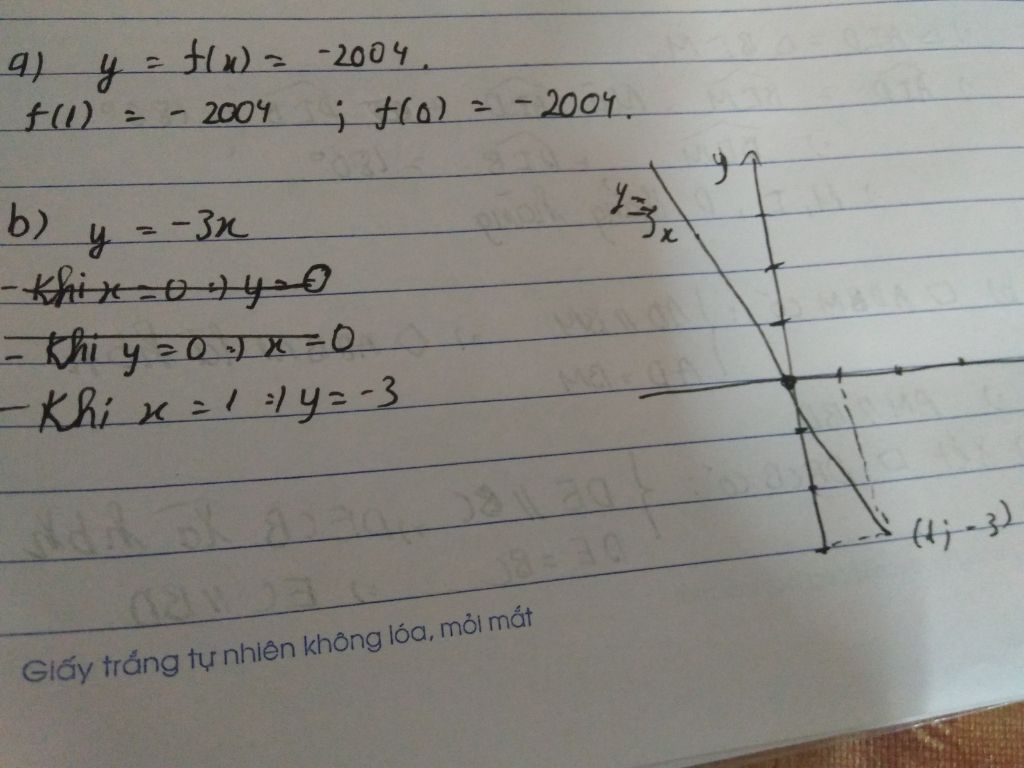 a) y = f(x) = -2004.
f(1) = -2004 ; f(0) = -2004.
b) y = -3x
- Khi x = 0 => y = 0
- Khi y = 0 => x = 0
- Khi x = 1 => y = -3
y
y = -3x
(1; -3)
Giấy trắng tự nhiên không lóa, mỏi mắt